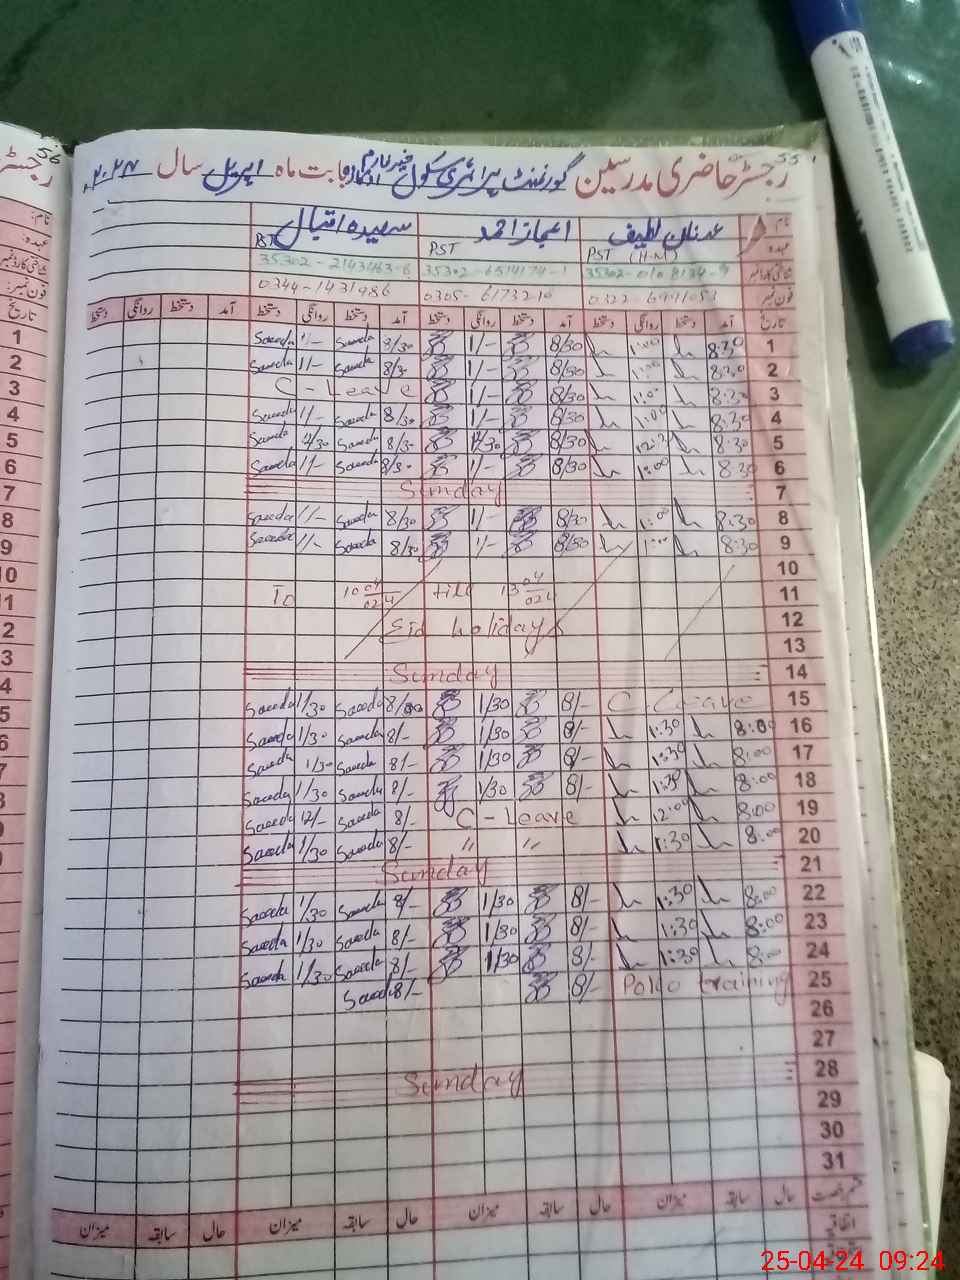 رجسٹر حاضری مدرسین گورنمنٹ پرائمری سکول بابت ماہ اپریل سال ۲۰۲۴
55
56
نام عدنان لطیف اعجاز احمد سعیدہ اقبال
عہدہ PST (H-M) PST PST
شناختی کارڈ نمبر 35302-6514174-1 35302-2143163-6
فون نمبر: 0305-6173210 0344-1431986
تاریخ آمد دستخط روانگی دستخط آمد دستخط روانگی دستخط آمد دستخط روانگی دستخط آمد دستخط روانگی دستخط
1 8:30 1:00 8/30 1/- 8/30 Saeeda 1/- Saeeda
2 8:30 1:00 8/30 1/- 8/30 Saeeda 1/- Saeeda
3 8:30 1:00 8/30 1/- C-Leave
4 8:30 1:00 8/30 1/- 8/30 Saeeda 1/- Saeeda
5 8:30 12:30 8/30 12/30 8/30 Saeeda 12/30 Saeeda
6 8:30 1:00 8/30 1/- 8/30 Saeeda 1/- Saeeda
7 Sunday
8 8:30 1:00 8/30 1/- 8/30 Saeeda 1/- Saeeda
9 8:30 1:00 8/30 1/- 8/30 Saeeda 1/- Saeeda
10
11 To 10 04/024 till 13 04/024
12 Eid holidays
13
14 Sunday
15 C-Leave 8/- 1/30 8/00 Saeeda 1/30 Saeeda
16 8:00 1:30 8/- 1/30 8/- Saeeda 1/30 Saeeda
17 8:00 1:30 8/- 1/30 8/- Saeeda 1/30 Saeeda
18 8:00 1:30 8/- 1/30 8/- Saeeda 1/30 Saeeda
19 8:00 12:00 C-Leave 8/- Saeeda 12/- Saeeda
20 8:00 1:30 " " 8/- Saeeda 1/30 Saeeda
21 Sunday
22 8:00 1:30 8/- 1/30 8/- Saeeda 1/30 Saeeda
23 8:00 1:30 8/- 1/30 8/- Saeeda 1/30 Saeeda
24 8:00 1:30 8/- 1/30 8/- Saeeda 1/30 Saeeda
25 Polio training 8/- 8/- Saeeda
26
27
28 Sunday
29
30
31
حال سابقہ میزان حال سابقہ میزان حال سابقہ میزان حال سابقہ میزان
اتفاقیہ
25-04-24 09:24